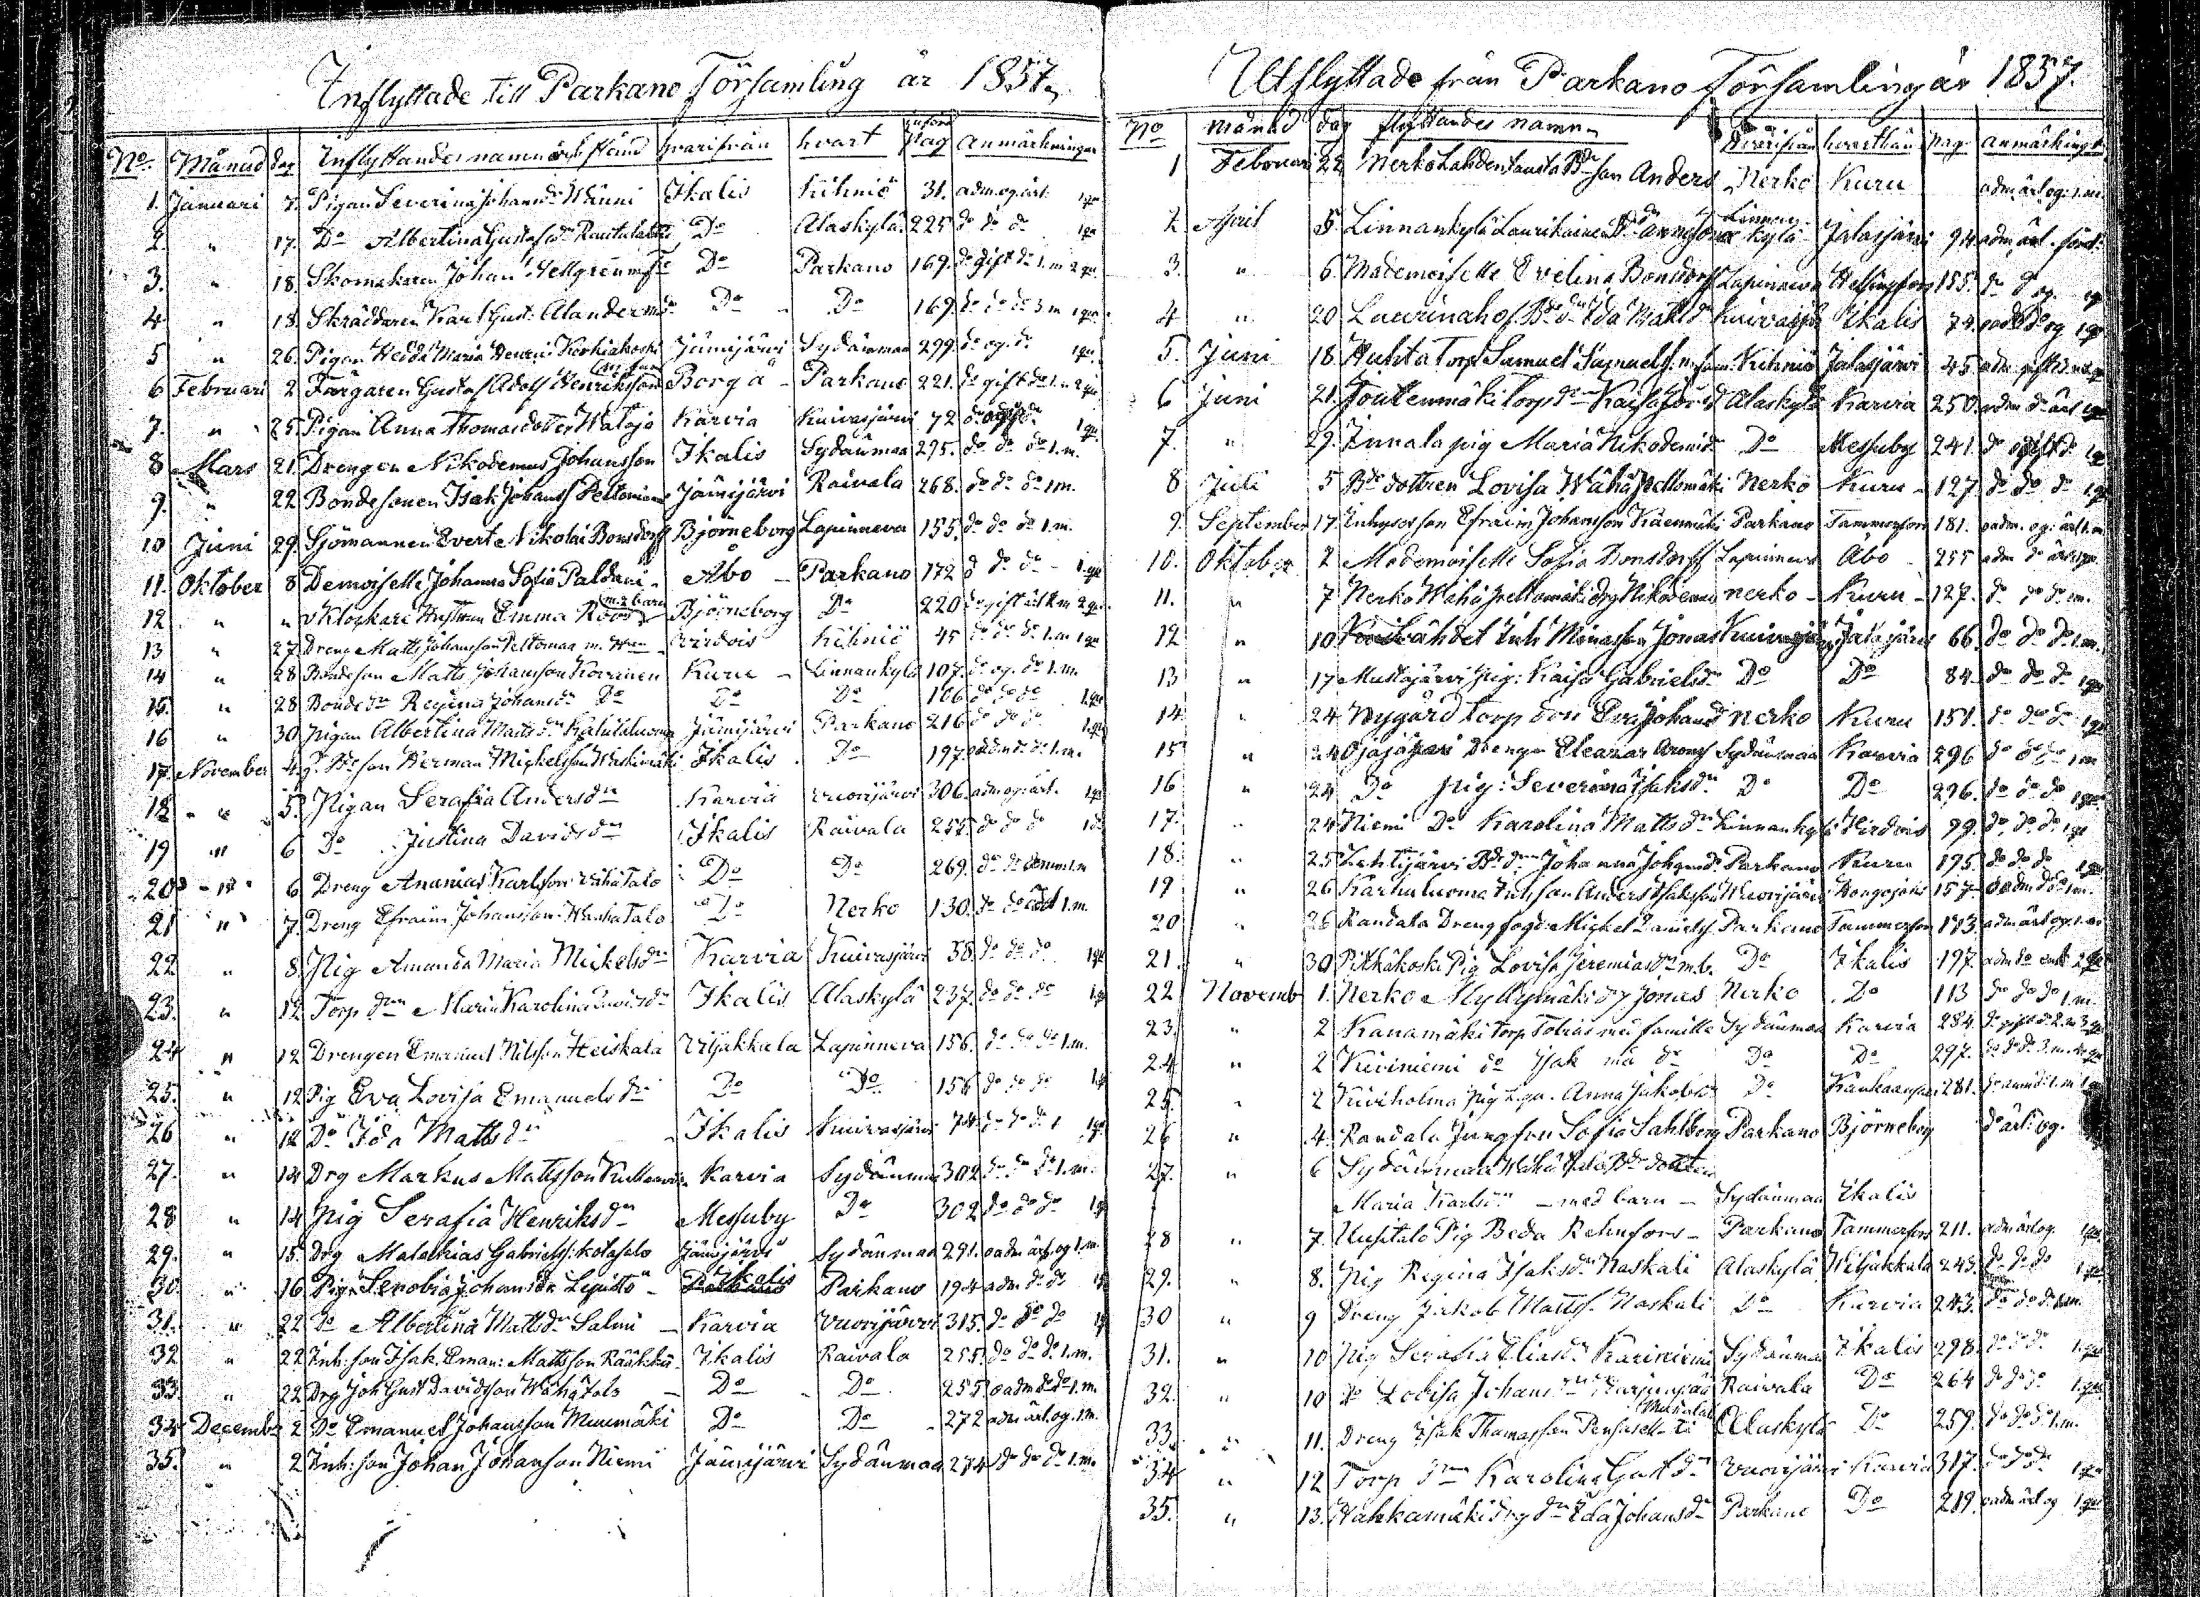 Inflyttade till Parkano Församling år 1857.
No. Månad dag Inflyttandes namn och stånd hvarifrån hvart införd Pag Anmärkningar
1. Januari 7. Pigan Severina Johansdr Wänni Ikalis Kihniö 31. adm. og. ärl. 1 qu
2. " 17. Do Albertina Gustafsdr Do Alaskylä 225 do do do 1 qu
3. " 18. Skomakaren Johan Hellgren Do Parkano 169. do gift do 1. m 2 qu.
4 " 18. Skräddaren Karl Gust: Alander Do Do 169. do do do 3 m 1 qu.
5 " 26. Pigan Hedda Maria Kerhiakoski Jämijärvi Sydänmaa 299. do og. do 1 qu.
6 Februari 2 Färgaren Gustaf Adolf Henriksson Borgå Parkano 221. do gift do 1. m 2 qu
7. " 25. Pigan Anna Thomasdotter Wataja Karvia Kuivasjärvi 72 do 1 qu.
8 Mars 21. Drengen Nikodemus Johansson Ikalis Sydänmaa 295. do do do 1. m.
9. " 22 Bondesonen Isak Johanss Peltoniemi Jämijärvi Raivala 268. do do do 1 m.
10 Juni 29. Sjömannen Evert Nikolai Bonsdorff Björneborg Lapinneva 155. do do do 1. m.
11. Oktober 8 Demoiselle Johanna Sofia Paldani Åbo Parkano 172 do do 1. qu
12 " " v Klockare Enkan Emma Roos m. 2 barn Björneborg Do 220 do gift ärl 2 m 2 qu.
13 " 27 Dreng Matts Johansson Peltomaa m. Virdois Kihniö 45 do do do 1. m 1 qu
14 " 28 Bondeson Matts Johansson Korrinen Kuru Linnankylä 107. do og. do 1. m.
15. " 28 Bonde dr Regina Johansdr Do Do Do 106 do do do 1. qu
16 " 30. Pigan Albertina Matts dr Jämijärvi Parkano 216 do do do 1. qu
17 November 4. son Herman Mickelsson Ikalis Do 197. oadm do do 1. m.
18 " 5. Pigan Serafia Anders dr Karvia Vuorijärvi 306. adm og: ärl. 1 qu
19 " 6 Do Justina Davids dr Ikalis Raivala 255 do do do 1 do
20 " 6 Dreng Ananias Karlsson Vähä Talo Do Do 269. do do 1. m
21 " 7. Dreng Efraim Johansson Wanha Talo Do Nerko 130. do do 1. m.
22 " 8. Pig Amanda Maria Mickelsdr Karvia Kuivasjärvi 58. do do do 1 qu
23. " 12 Torp drn Maria Karolina Davidsdr Ikalis Alaskylä 237. do do do 1. qu
24 " 12 Drengen Emanuel Nilsson Heiskala Viljakkala Lapinneva 156. do do do 1. m.
25. " 12 Pig Eva Lovisa Emanuels dr Do Do 156 do do do 1 qu
26 " 12 Do Ida Matts dr Ikalis Kuivasjärvi 74 do do do 1 qu
27. " 14 Drg Markus Mattsson Karvia Sydänmaa 302 do do do 1. m.
28 " 14 Pig Serafia Henriks dr Messuby Do 302 do do do 1 qu
29. " 15. Drg Malakias Gabrielss: Kotasalo Jämijärvi Sydänmaa 291. oadm ärl. og 1. m.
30. " 16 Pigan Senobia Johansdr Ikalis Parkano 194 adm do do
31. " 22 Do Albertina Matts dr Salmi Karvia Vuorijärvi 315. do do do 1 qu
32 " 22 Inh: son Isak Eman: Mattsson Räikkä Ikalis Raivala 255. do do do 1. m.
33. " 22 Drg Joh Gust Davidsson Wähätalo Do Do 255 oadm do do 1. m.
34 Decemb. 2 Do Emanuel Johansson Muumäki Do Do 272 adm ärl. og. 1. m.
35. " 2 Inh: son Johan Johansson Niemi Jämijärvi Sydänmaa 274 do do do 1. m.
Utflyttade från Parkano Församling år 1857.
No månad dag flyttandes namn hvarifrån hvarthän pag. anmärkingar
1 Februari 22 Nerko Lahdensuusta Bde son Anders Nerko Kuru adm ärl. og: 1. m.
2 April 5 Linnankylä Laurikainen Linnankylä Jalasjärvi 94 adm ärl.
3. " 6 Mademoiselle Evelina Bonsdorff Lapinneva Helsingfors 155. do do og. qu
4 " 20 Laurinaho Bde dr Ida Matts dr Kuivasjärvi Ikalis 74. oadm do og 1 qu
5. Juni 18 Huhta Torp Samuel Samuelss. Kihniö Jalasjärvi 45 adm gift
6 Juni 21. Joutenmäki Torp drn Kaisa Alaskylä Karvia 250. adm do ärl 1 qu
7. " 29. Innala pig Maria Nikodemidr Do Messuby 241. do do 1 qu
8 Juli 5 Bde dottren Lovisa Wähä Peltomäki Nerko Kuru 127. do do do 1. qu
9. September 17. Inhyses son Efraim Johansson Käenmäki Parkano Tammerfors 181. oadm. og: ärl 1. m
10. Oktober 2 Mademoiselle Sofia Bonsdorff Lapinneva Åbo 255 adm do ärl 1 qu
11. " 7 Nerko Wähä Peltomäki drg Nikodemus nerko Kuru 127. do do do m.
12 " 10 Inh Manasson Jonas Kuivasjärvi Jalasjärvi 66. do do do 1. m.
13 " 17 Mustajärvi Pig: Kaisa Gabrielsdr Do Do 84 do do do 1 qu
14. " 24 Nygård torp don Eva Johansd nerko Kuru 151. do do do 1 qu
15 " 24 Ojajärvi Drengen Eleazar Sydänmaa Karvia 296 do do do 1 m
16 " 24 Do pig: Severina Isaksdr Do Do 296. do do do 1 qu
17. " 24 Niemi Do Karolina Matts dr Linnankylä Virdois 99. do. do. do. 1 qu
18. " 25 Lehtijärvi Bde drn Johanna Johansd. Parkano Kuru 195 do do do 1 qu
19 " 26 Karhuluoma Inh son Anders Isaksson Vuorijärvi Hongojoki 157 oadm do do 1 m.
20 " 26 Randala Drengfogd: Mickel Daniels. Parkano Tammerfors 173 adm ärl og. 1. m
21. " 30 Pitkäkoski Pig Lovisa Jeremiasdr m. b. Do Ikalis 197. adm do 2 qu
22 Novemb 1. Nerko Myllymäki drg Jonas Nerko Do 113 do do do 1. m.
23. " 2 Kanamäki torp Tobias med familie Sydänmaa Karvia 284. do gift do 2. m 3 qu
24. " 2 Kiviniemi do Isak md do Do Do 297. do do do 3. m.
25. " 2 Kiviholma pig Anna Jakobsd Do Kankaanpää 281. do
26 " 4. Randala Jungfru Sofia Sahlberg Parkano Björneborg do ärl: og.
27. " 6 Sydänmaa Wähä Talo Bde dottren
Maria Karlsdr - med barn - Sydänmaa Ikalis
28 " 7. Uusitalo Pig Beda Rehnfors Parkano Tammerfors 211. adm ärl og. 1 qu.
29. " 8. Pig Regina Isaksdr Naskali Alaskylä Viljakkala 243. do do do 1 qu
30 " 9 Dreng Jakob Mattss. Naskali Do Karvia 243. do do do 1 m.
31. " 10 Pig Serafia Eliasdr Kariniemi Sydänmaa Ikalis 298. do do do 1. qu
32. " 10 Do Lovisa Johansdr Raivala Do 264 do do do 1. qu
33. " 11. Dreng Isak Thomasson Alaskylä Do 259. do do do 1. m.
34 " 12 Torp drn Karolina Gust dr Vuorijärvi Karvia 317. do do do 1 qu
35. " 13. Vahkamäki drg dr Ida Johansdr Parkano Do 219. oadm ärl og 1 qu